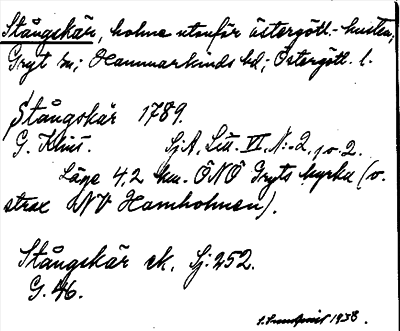 Stångskär, holme utanför östergötl.-kusten,
Gryt sn; Hammarkinds hd; Östergötl. l.
Stångskär 1789.
G. Klint. Sj.A. Litt. VI, N:-2, p. 2.
Läge 4,2 km. ÖNÖ Gryts kyrka (o.
strax NV Hamnholmen).
Stångskär ek. Sj: 252.
G. 46.
1938.